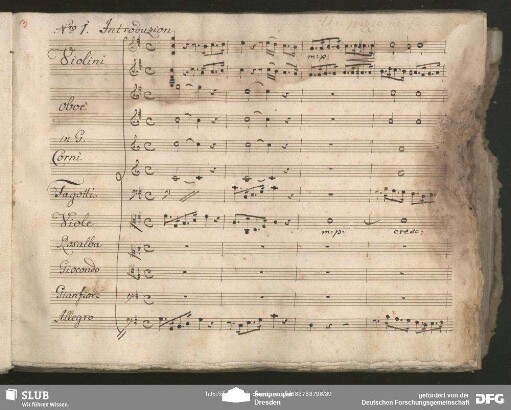 No 1. Introduzion
Violini
m:p:
Oboe
in G.
Corni
Fagotti
Viole
m:p:
cresc:
Rosalba
Giocondo
Gianfiore
Allegro
SLUB
Wir führen Wissen.
Semperoper
Dresden
gefördert von der
Deutschen Forschungsgemeinschaft
DFG